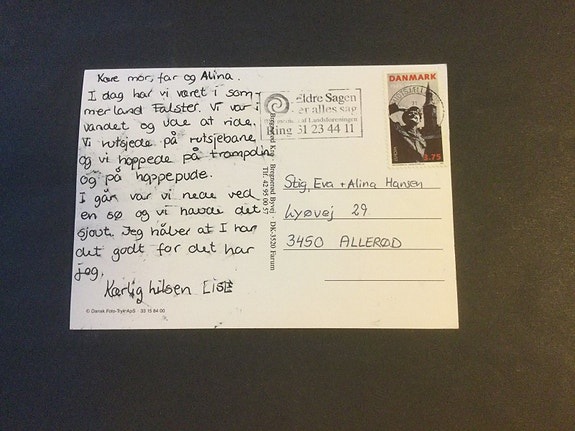 Kære mor, far og Alina.
I dag har vi været i som-
merland Falster. Vi var i
vandet og ude at ride.
Vi rutsjede på rutsjebane
og vi hoppede på trampolin
og på hoppepude.
I går var vi nede ved
en sø og vi havde det
sjovt. Jeg håber at I har
det godt for det har
jeg.
Kærlig hilsen LISE
© Dansk Foto-Tryk ApS 33 15 84 00
Bregnerød Kro · Bregnerød Byvej · DK-3520 Farum
Tlf. 42 95 00 57
Ældre Sagen
er alles sag
af Landsforeningen
Ring 31 23 44 11
DANMARK
EUROPA
3.75
Stig, Eva + Alina Hansen
Lyøvej 29
3450 ALLERØD